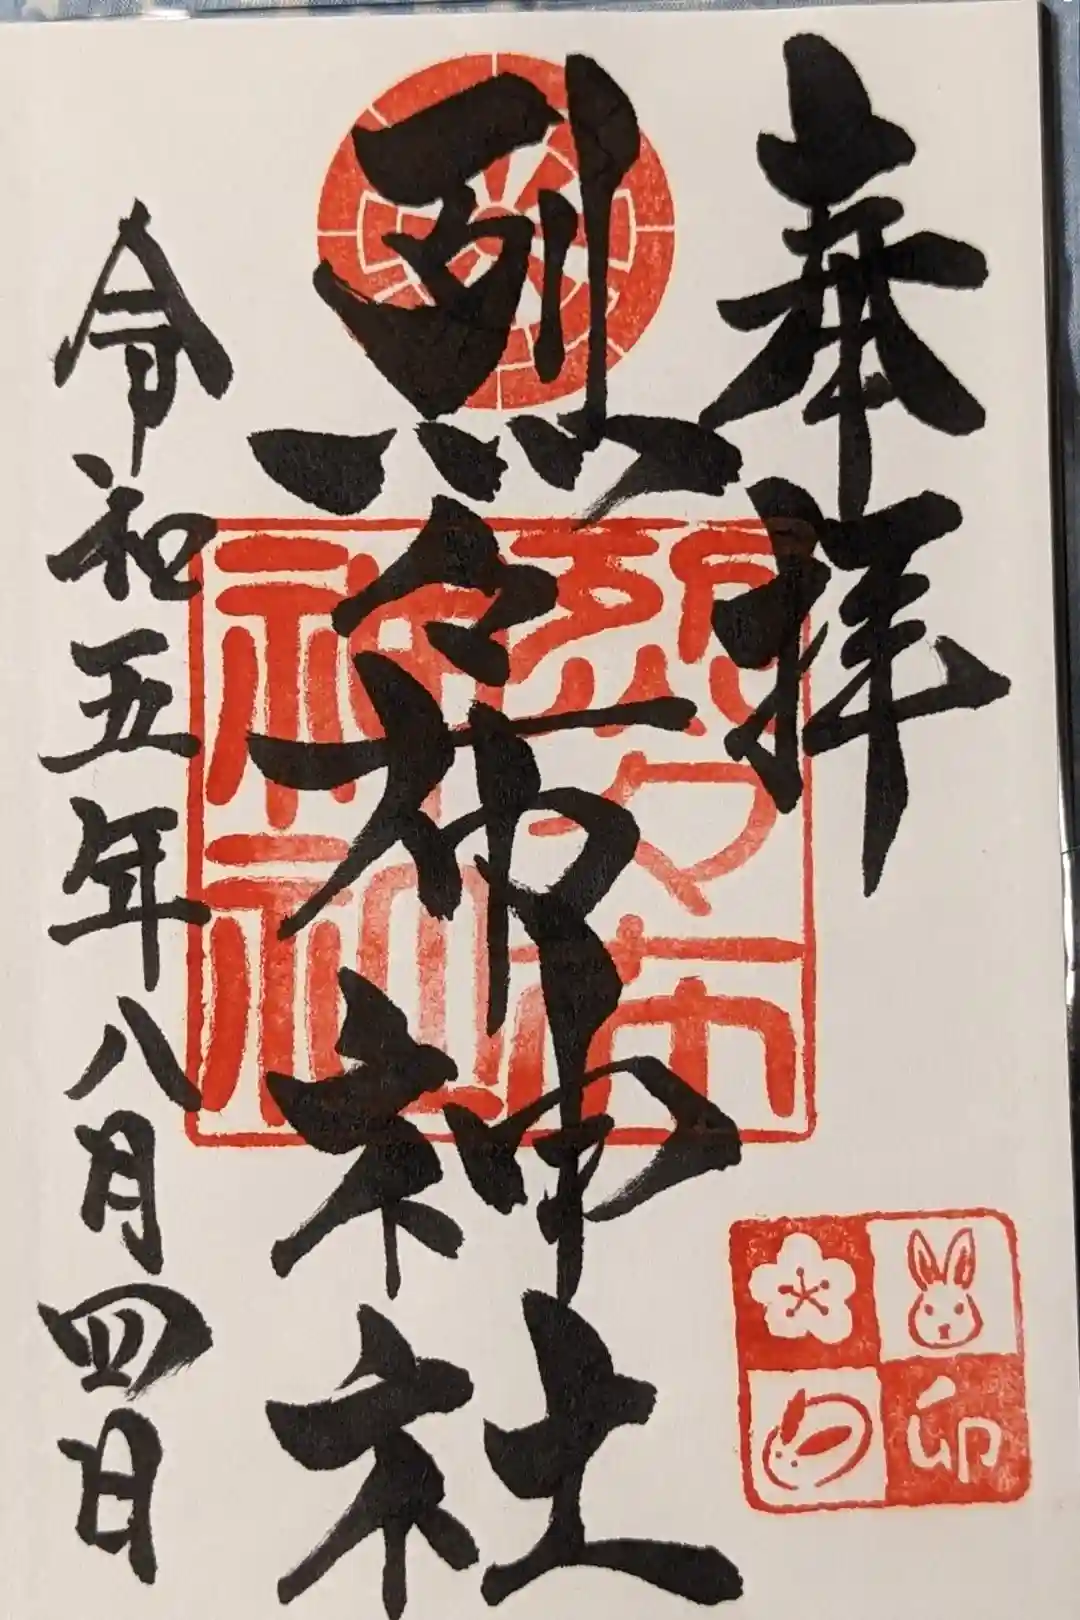 奉拝
烈々布神社
令和五年八月四日
烈々布
神社
卯